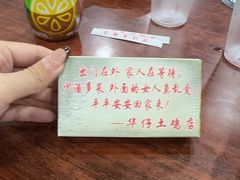 出门在外 家人在等待;
少酒多菜 外面的女人莫乱爱
平平安安回家来!
——华仔土鸡店